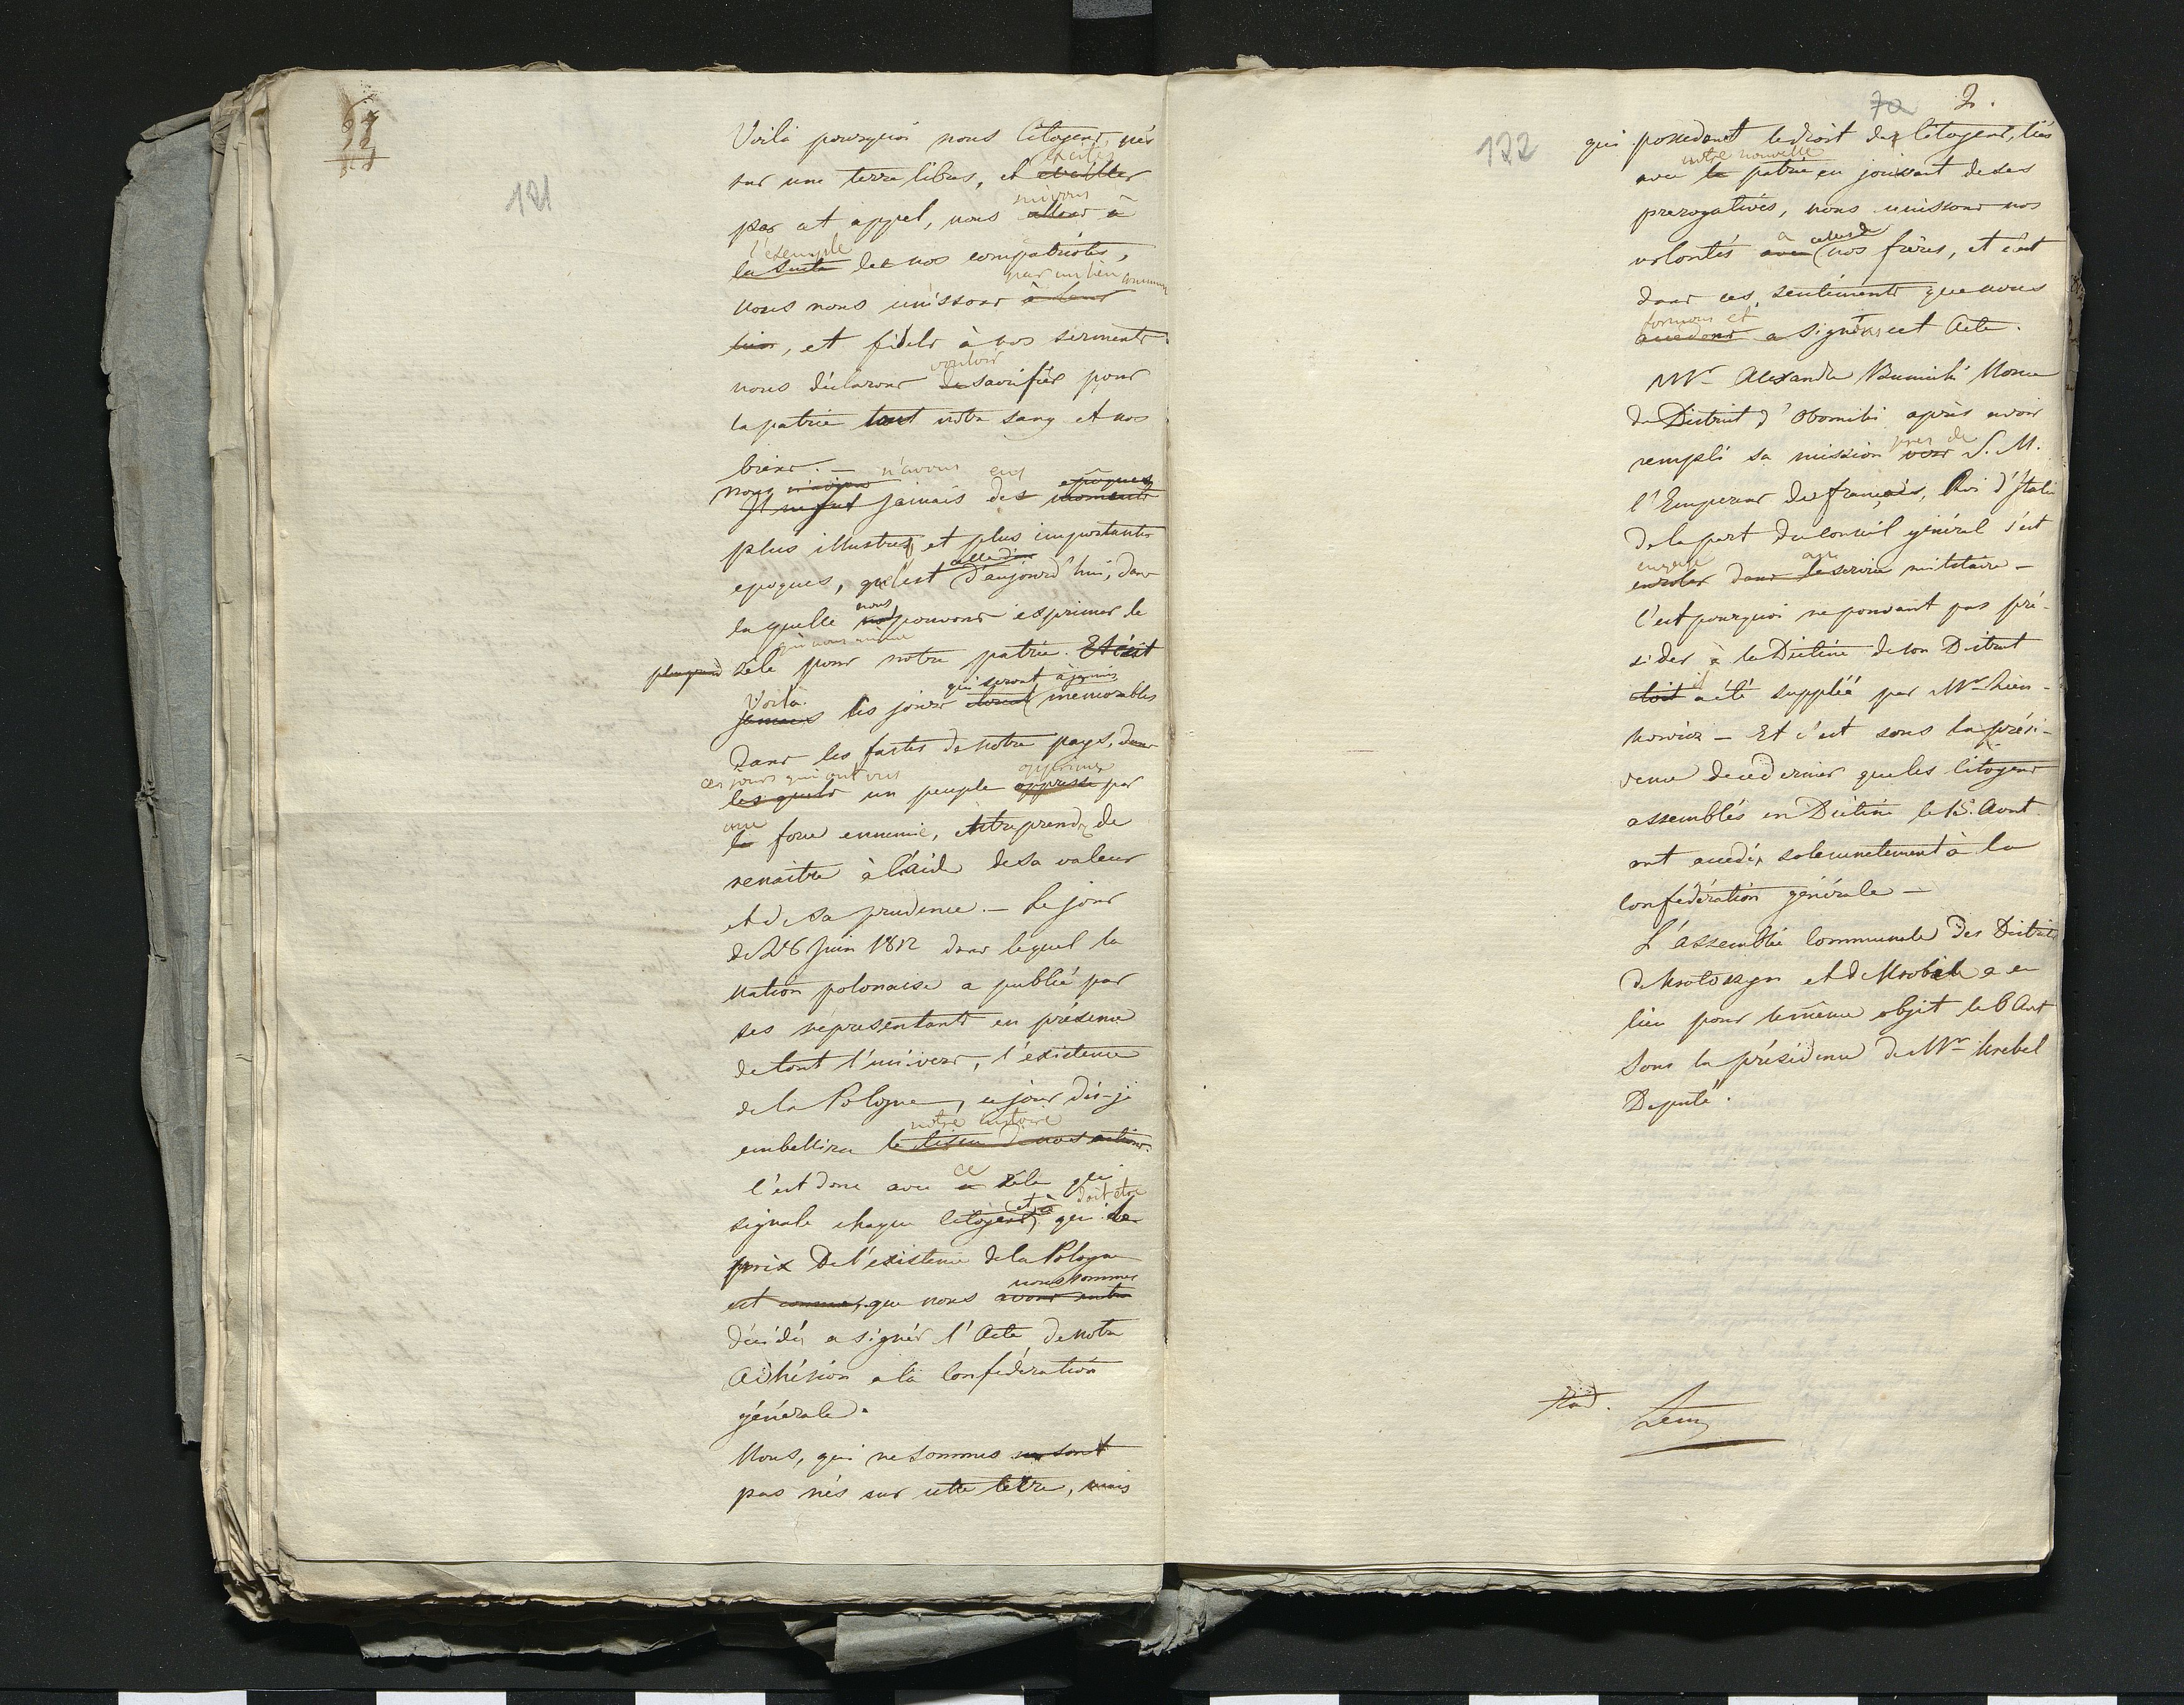 121
Voilà pourquoi nous Citoyens, nés
excités
sur une terre libre, et eveiller
suivons
par cet appel, nous allons à
l'exemple
la suite de nos compatriotes,
par un lien commun
nous nous unissons à leur
lien, et fidels à nos serments
vouloir
nous déclarons de sacrifier pour
la patrie tout notre sang et nos
biens. —
n'avons eus
époques
Nous jamais des moments
Il ne fut
plus illustres et plus importants
celle d'
epoques, qu'est d'aujourd'hui, dans
nous
laquelle pouvons exprimer le
zèle pour notre patrie. Et c'est
Voilà qui seront à jamais
jamais les jours memorables
dans les fastes de notre pays, dans
ces jours qui ont vus
opprimé
lesquels un peuple oppressé par
une
la force ennemie, entreprendre de
renaitre à l'aide de sa valeur
et de sa prudence. — Le jour
de 26 Juin 1812 dans lequel la
Nation polonaise a publié par
ses représentants en présence
de tout l'univers, l'existence
de la Pologne, ce jour dis-je
notre histoire
embellira le de nos actions.
ce
C'est donc avec zèle qui
et
doit être
signale chaque Citoyens, qui le
prix De l'existence de la Pologne
nous sommes
est que nous avons
décidés a signer l'Acte de notre
Adhésion a la Confédération
générale.
Nous, qui ne sommes sont
pas nés sur cette terre, mais
70 2.
122
qui possedant le droit des Citoyens, liés
notre nouvelle
avec la patrie en jouissant de ses
prerogatives, nous unissons nos
a celles de
volontés avec nos frères, et c'est
dans ces sentiments que nous
formons et
accedons a signons cet Acte.
Mr Alexandre Nonce
du District d' après avoir
près de
rempli sa mission vers S. M.
l'Empereur des français, Roi d'Italie
de la part du Conseil général s'est
engagé au
enroler dans le service militaire —
C'est pourquoi ne pouvant pas pré-
sider à la Diétine de son District
il
étoit a été suppléé par Mr
— Et c'est sous la prési-
dence de ce dernier que les Citoyens
assemblés en Diétine le 15. Aout
ont accédés solemnelement à la
Confédération générale —
L'assemblée Communale des Districts
de Krotoszyn et de a eu
lieu pour le même objet le 6 Aout
sous la présidence de Mr
Deputé.